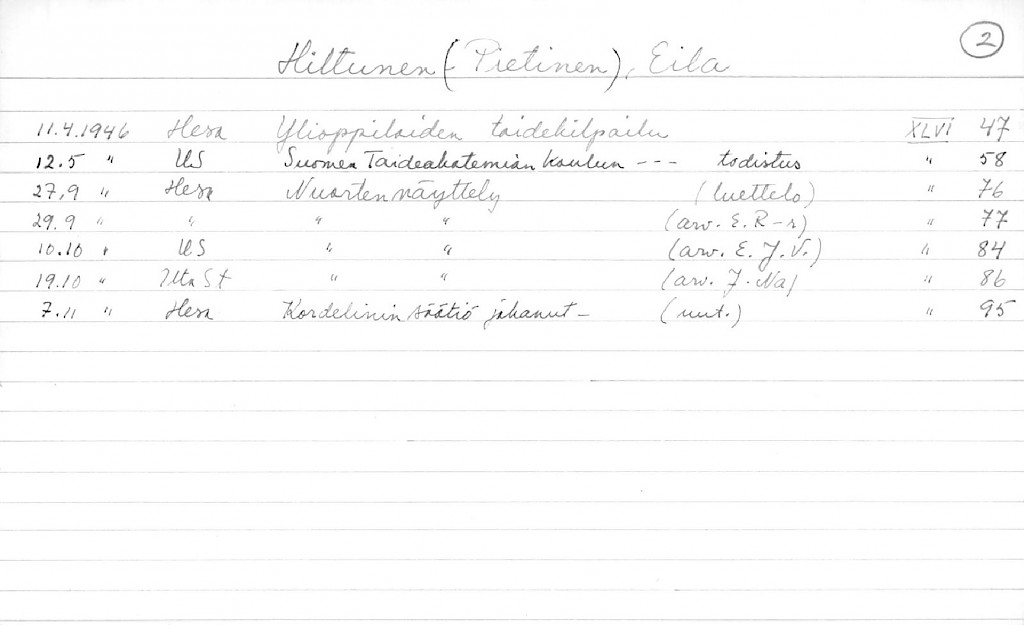 2
Hiltunen (-Pietinen), Eila
11.4.1946 Hesa Ylioppilaiden taidekilpailu XLVI 47
12.5 " US Suomen Taideakatemian koulun --- todistus " 58
27.9 " Hesa Nuorten näyttely (luettelo) " 76
29.9 " " " " (arv. E. R-r) " 77
10.10 " US " " (arv. E. J. V.) " 84
19.10 " Uta St " " (arv. J. Na) " 86
7.11 " Hesa Kordelinin säätiö jakanut - (uut.) " 95